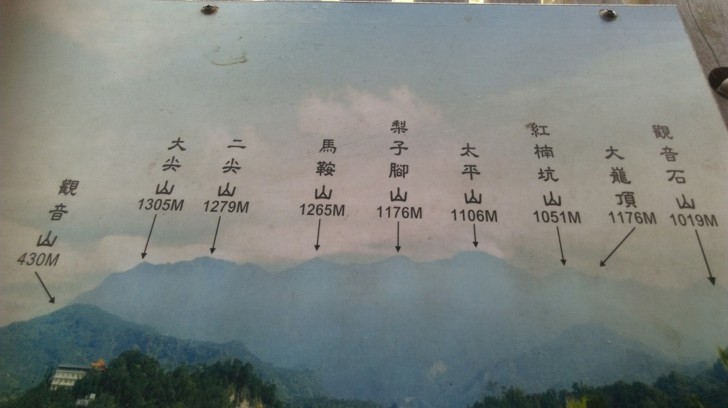 觀音山
430M
大尖山
1305M
二尖山
1279M
馬鞍山
1265M
梨子腳山
1176M
太平山
1106M
紅楠坑山
1051M
大龍頂
1176M
觀音石山
1019M